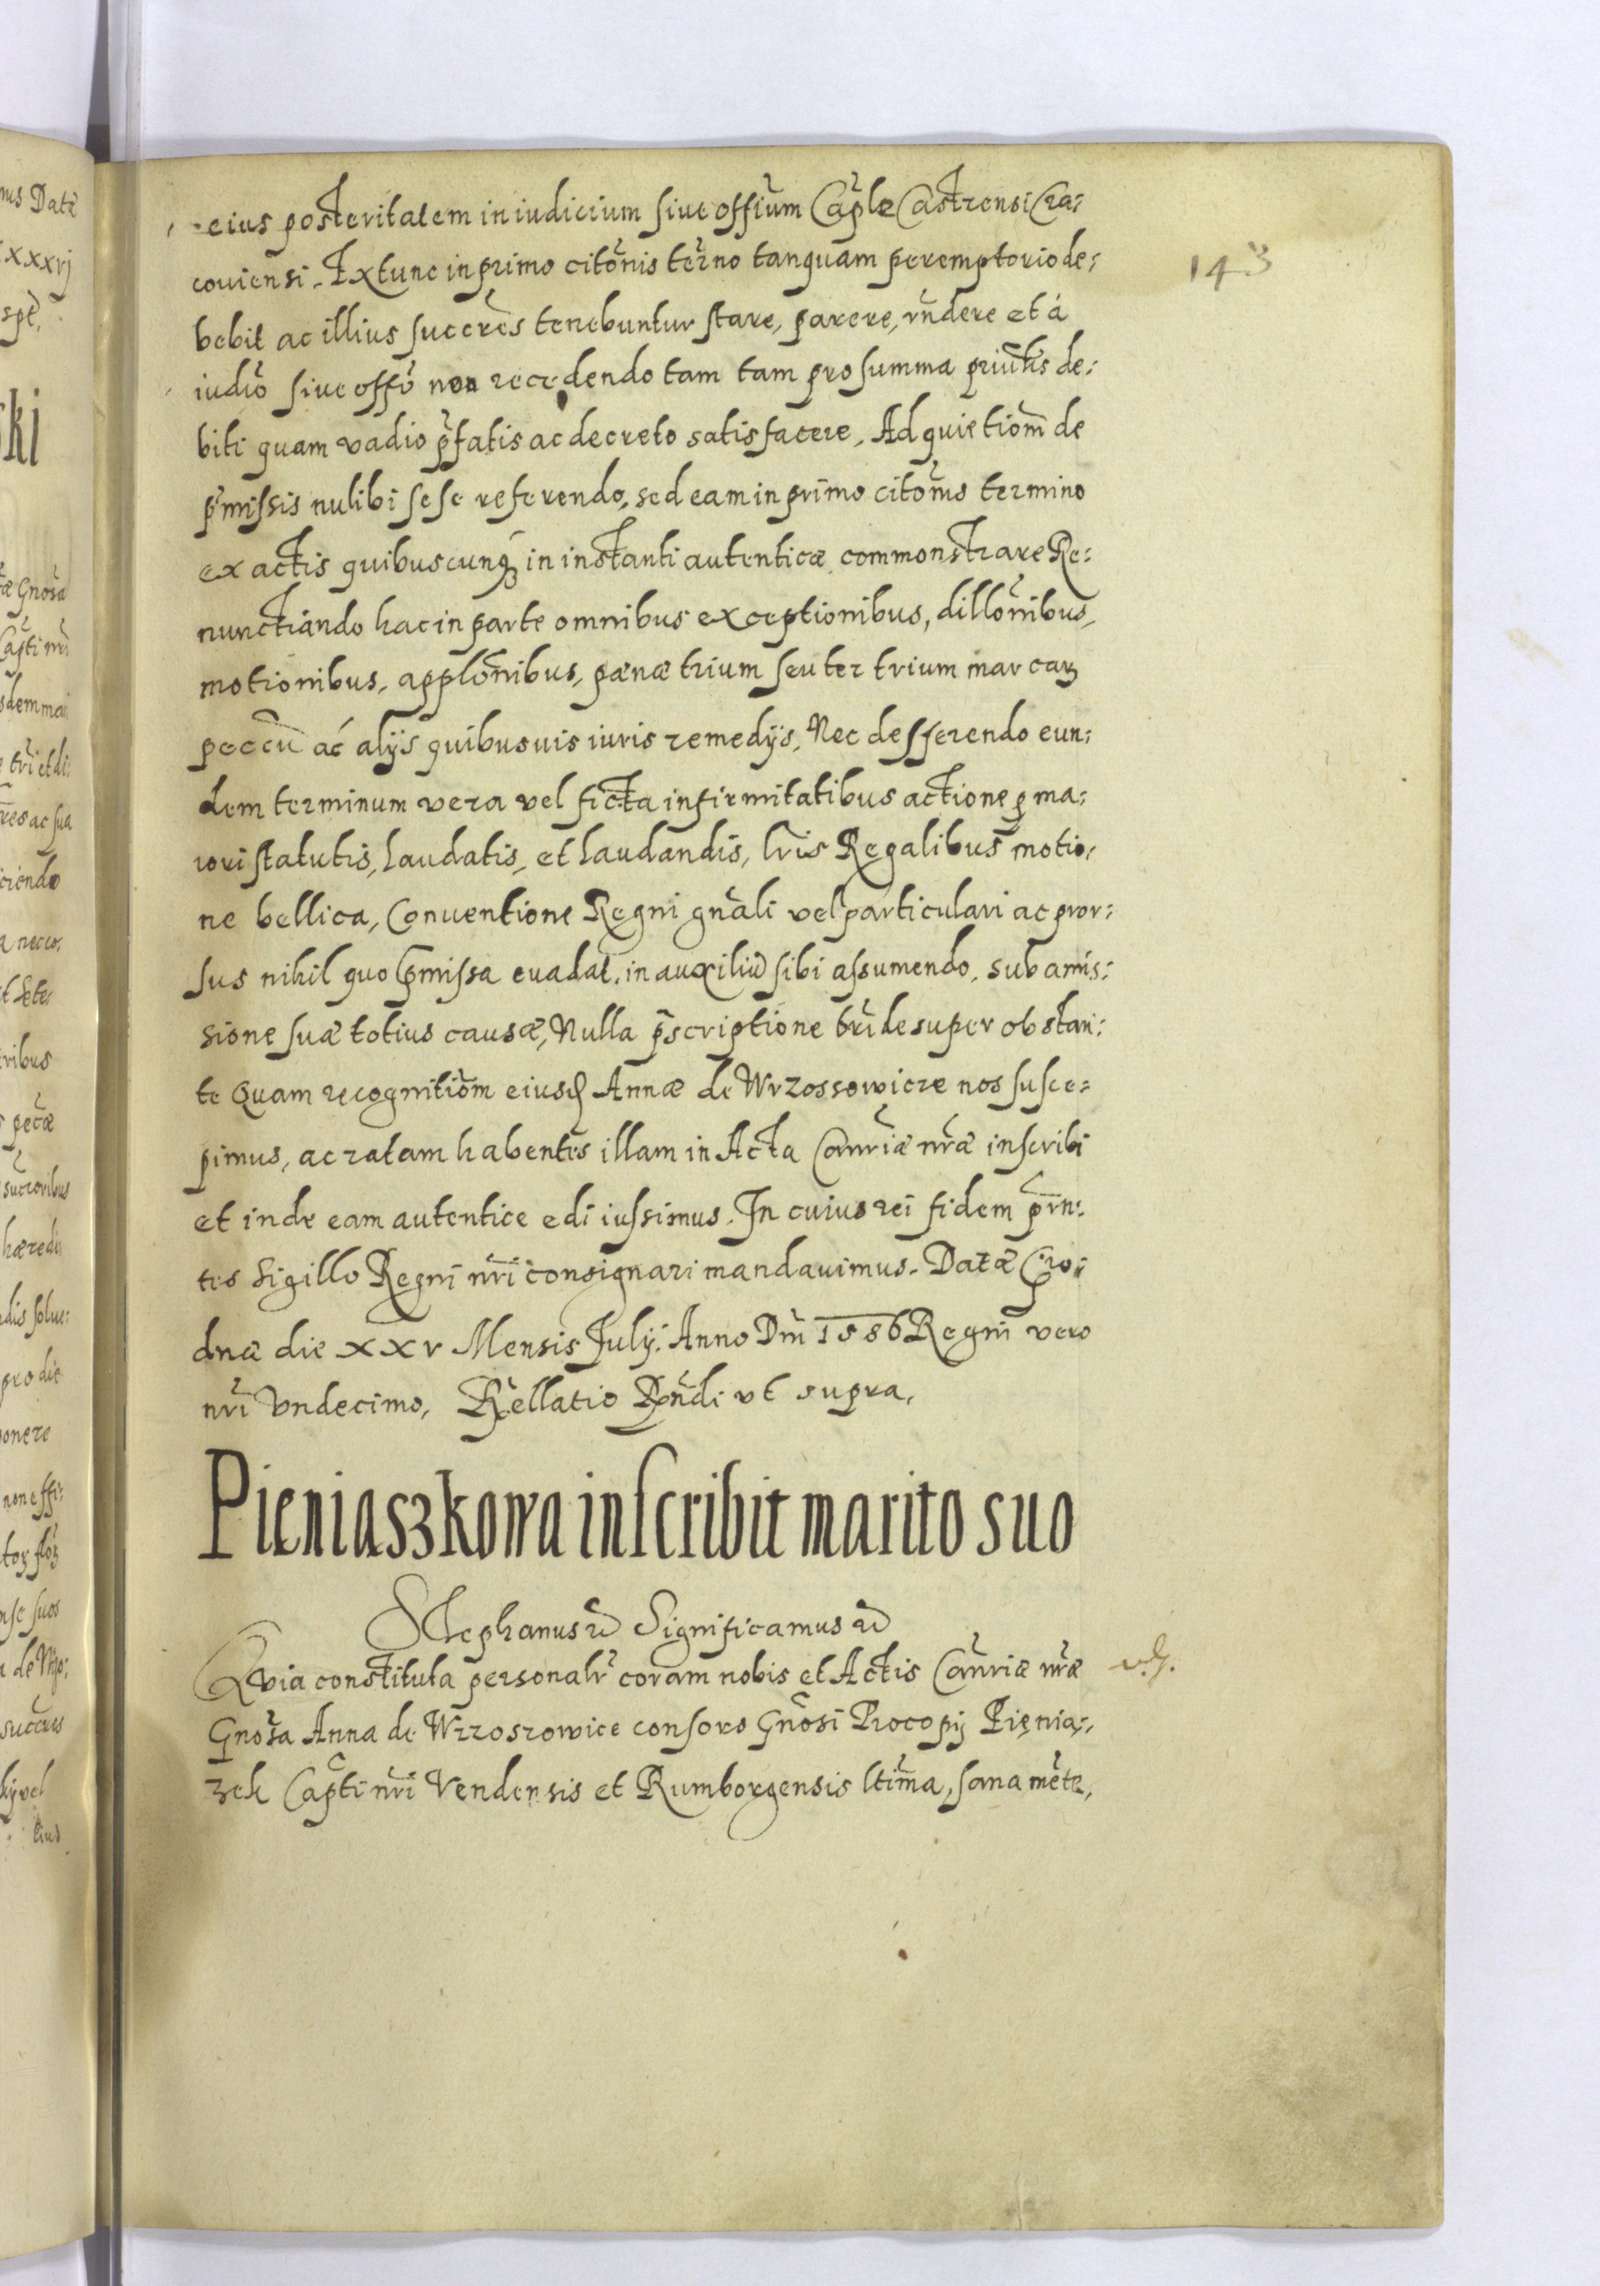 143
eius posteritatem in iudicium siue offium Caple Castrensi Cra:
couiensi. Extunc in primo citonis terno tanquam peremptorio de:
bebit ac illius succres tenebuntur stare, parere, rndere et á
iudio siue offo non recedendo tam tam pro summa priutis de:
biti quam vadio pfatis ac decreto satisfacere. Ad quietiom de
pmissis nulibi sese referendo, sed eam in primo citonis termino
ex actis quibuscunq in instanti autenticæ commonstrare Re:
nunctiando hac in parte omnibus exceptionibus, dillonibus,
motionibus, applonibus, pænæ trium seu ter trium marcaꝝ
peccu ac alijs quibusuis iuris remedijs, Nec defferendo eun:
dem terminum vera vel ficta infirmitatibus actione p ma:
iori statutis, laudatis, et laudandis, lris Regalibus motio:
ne bellica, Conuentione Regni gnali vel particulari ac pror:
sus nihil quo pmissa euadat, in auxiliu sibi assumendo. sub amis:
sione suæ totius causæ, Nulla pscriptione tri desuper obstan:
te Quam recognitiom eiusd Annæ de Wrzossowicze nos susce:
pimus, ac ratam habentes illam in Acta Canriæ nræ inscribi
et inde eam autentice edi iussimus. In cuius rei fidem prn:
tes Sigillo Regni nri consignari mandauimus. Datæ Gro:
dnæ die xxv Mensis Julij. Anno Dni 1586 Regni vero
nri Vndecimo, Rellatio Rndi vt supra.
Pieniaszkowa inscribit marito suo
Stephanus Significamus
Qvia constituta personalr coram nobis et Actis Canriæ nræ
v. g.
Gnosa Anna de Wrzoszowice consors Gnosi Procopij Pięnią:
zek Capti nri Vendensis et Rumborgensis ltima, sana mete,